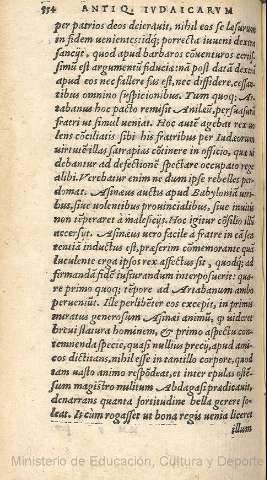 554 ANTIQ. IVDAICARVM
per patrios deos deierauit, nihil eos se læsurum
in fidem uenientes: idq; porrecta iuueni dextra
sanciit, quod apud barbaros cōuenturos certis-
simū est argumentū fiduciæ: nā post datā dextrā
apud eos nec fallere fas est, nec diffidere, cessan-
tibus omnino suspicionibus. Tum quoq; Ar-
tabanus hoc pacto remisit Anileū, persuasurū
fratri ut simul ueniat. Hoc autē agebat rex uo-
lens cōciliatis sibi his fratribus per Iudæorum
uirtutē illas satrapias cōtinere in officio, quæ ui
debantur ad defectionē spectare occupato rege
alibi. Verebatur enim ne dum ipse rebelles per-
domat, Asinæus auctus apud Babyloniā uiri-
bus, siue uolentibus prouincialibus, siue inuitis
non tēperaret à maleficijs. Hoc igitur cōsilio illū
accersit. Asinæus uero facile à fratre in eā sen-
tentiā inductus est, præserim cōmemorante quā
luculente erga ipsos rex affectus sit, quodq; ad
firmandā fidē iusiurandum interposuerit: qua-
re primo quoq; tēpore ad Artabanum ambo
perueniūt. Ille perlibēter eos excepit, in primis
miratus generosum Asinæi animū, qui uideret
breui statura hominem, & primo aspectu con-
temnenda specie, quasi nullius precij, apud ami-
cos dictitans, nihil esse in tantillo corpore, quod
tam uasto animo respōdeat, et inter epulas ostē-
sum magistro militum Abdagasi prædicauit,
denarrans quanta fortitudine bella gerere so-
leat. Is cum rogasset ut bona regis uenia liceret
illum
Ministerio de Educación, Cultura y Deporte